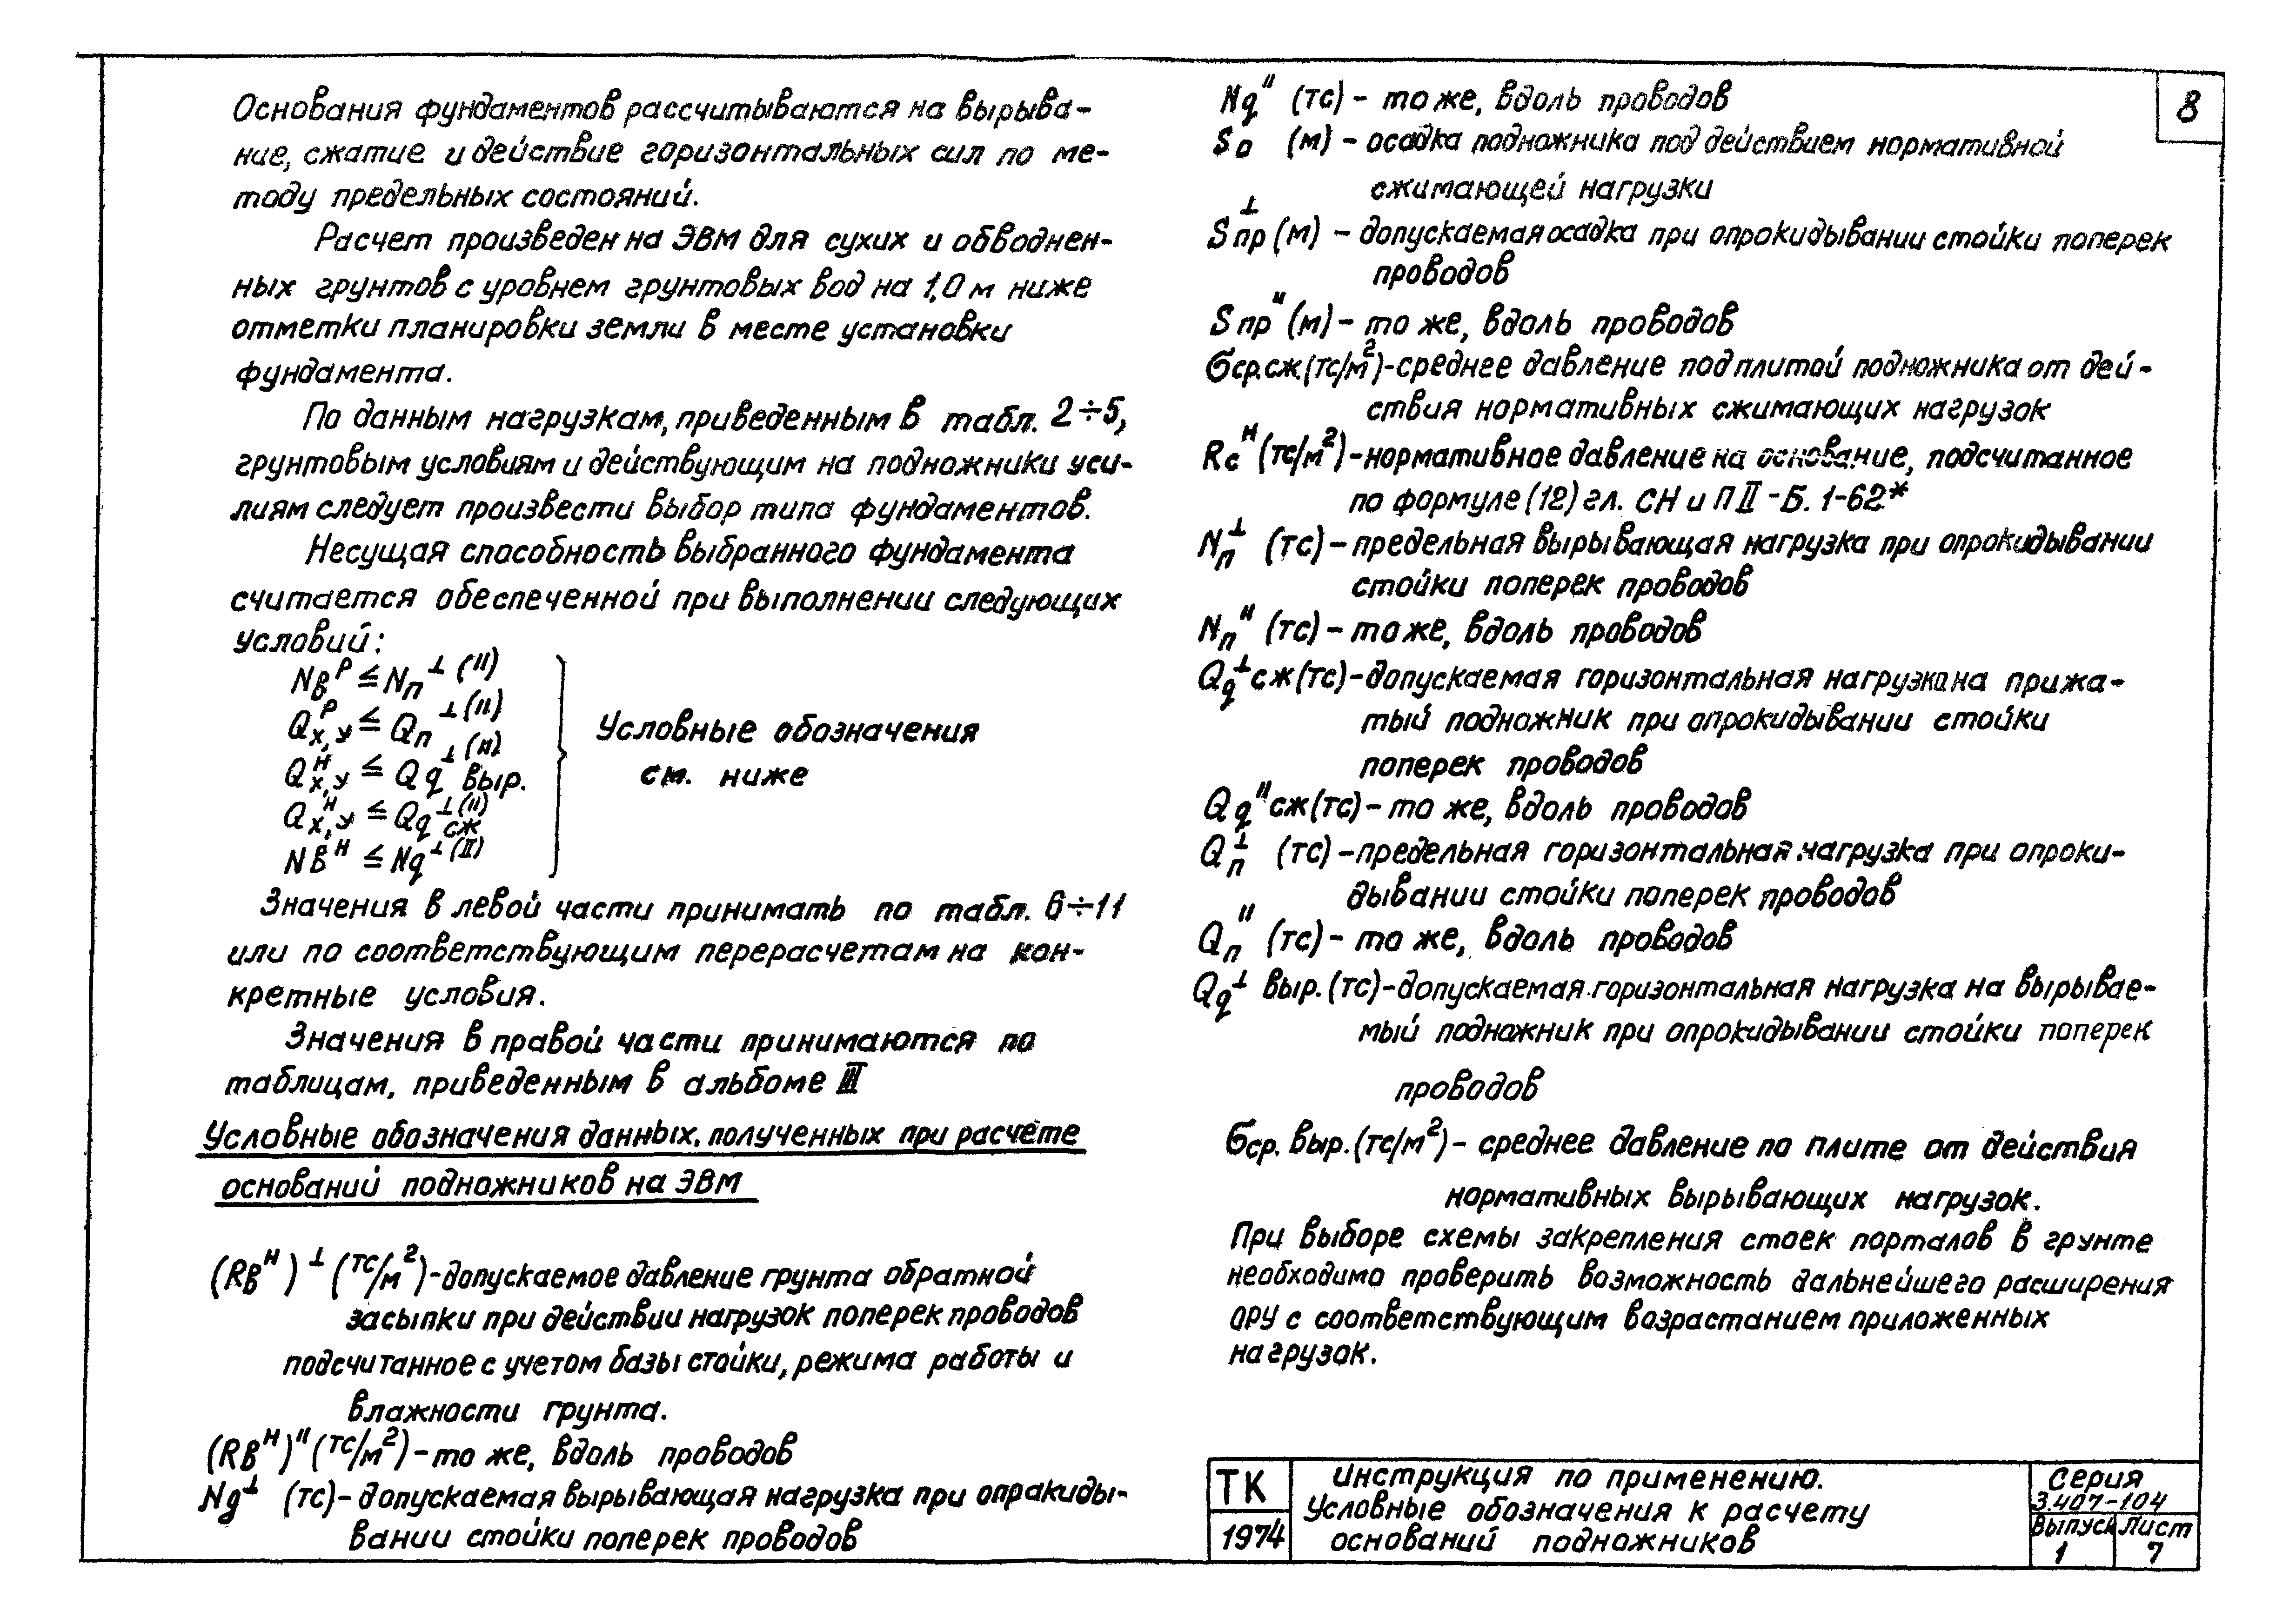 Основания фундаментов рассчитываются на вырыва-
ние, сжатие и действие горизонтальных сил по ме-
тоду предельных состояний.
Расчет произведен на ЭВМ для сухих и обводнен-
ных грунтов с уровнем грунтовых вод на 1,0 м ниже
отметки планировки земли в месте установки
фундамента.
По данным нагрузкам, приведенным в табл. 2÷5,
грунтовым условиям и действующим на подножники уси-
лиям следует произвести выбор типа фундаментов.
Несущая способность выбранного фундамента
считается обеспеченной при выполнении следующих
условий:
Nв^р ≤ Nп^⊥(॥)
Qх,у^р ≤ Qп^⊥(॥)
Qх,у^н ≤ Qq^⊥(॥) выр.
Qх,у^н ≤ Qq^⊥(॥) сж
Nв^н ≤ Nq^⊥(॥)
Условные обозначения
см. ниже
Значения в левой части принимать по табл. 6÷11
или по соответствующим перерасчетам на кон-
кретные условия.
Значения в правой части принимаются по
таблицам, приведенным в альбоме III
Условные обозначения данных, полученных при расчете
оснований подножников на ЭВМ
(Rв^н)^⊥ (тс/м²) - допускаемое давление грунта обратной
засыпки при действии нагрузок поперек проводов
подсчитанное с учетом базы стойки, режима работы и
влажности грунта.
(Rв^н)^॥ (тс/м²) - то же, вдоль проводов
Nq^⊥ (тс) - допускаемая вырывающая нагрузка при опракиды-
вании стойки поперек проводов
Nq^॥ (тс) - то же, вдоль проводов
Sо (м) - осадка подножника под действием нормативной
сжимающей нагрузки
Sпр^⊥ (м) - допускаемая осадка при опрокидывании стойки поперек
проводов
Sпр^॥ (м) - то же, вдоль проводов
бср.сж. (тс/м²) - среднее давление под плитой подножника от дей-
ствия нормативных сжимающих нагрузок
Rс^н (тс/м²) - нормативное давление на основание, подсчитанное
по формуле (12) гл. СН и П II-Б. 1-62*
Nп^⊥ (тс) - предельная вырывающая нагрузка при опрокидывании
стойки поперек проводов
Nп^॥ (тс) - то же, вдоль проводов
Qq^⊥ сж (тс) - допускаемая горизонтальная нагрузка на прижа-
тый подножник при опрокидывании стойки
поперек проводов
Qq^॥ сж (тс) - то же, вдоль проводов
Qп^⊥ (тс) - предельная горизонтальная нагрузка при опроки-
дывании стойки поперек проводов
Qп^॥ (тс) - то же, вдоль проводов
Qq^⊥ выр. (тс) - допускаемая горизонтальная нагрузка на вырывае-
мый подножник при опрокидывании стойки поперек
проводов
бср. выр. (тс/м²) - среднее давление по плите от действия
нормативных вырывающих нагрузок.
При выборе схемы закрепления стоек порталов в грунте
необходимо проверить возможность дальнейшего расширения
ОРУ с соответствующим возрастанием приложенных
нагрузок.
8
ТК
1974
Инструкция по применению.
Условные обозначения к расчету
оснований подножников
Серия
3.407-104
Выпуск
1
Лист
7